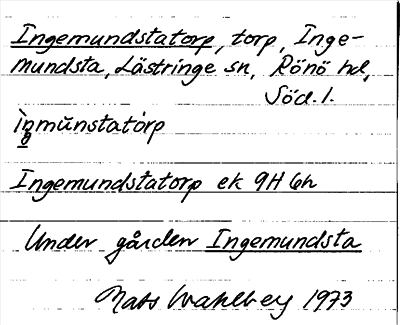 Ingemundstatorp, torp, Inge-
mundsta, Lästringe sn, Rönö hd,
Söd. l.
Ingemundstatorp ek 9H 6h
Under gården Ingemundsta
Mats Wahlberg 1973